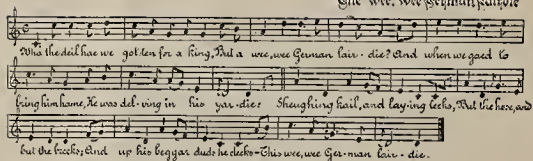 The Wee, Wee German Lairdie
Wha the deil hae we gotten for a king, But a wee, wee German lair-die? And when we gaed to
bring him hame, He was del-ving in his yar-die: Sheughing kail, and lay-ing leeks, But the hose, and
but the breeks; And up his beggar duds he cleeks- This wee, wee Ger-man lair-die.